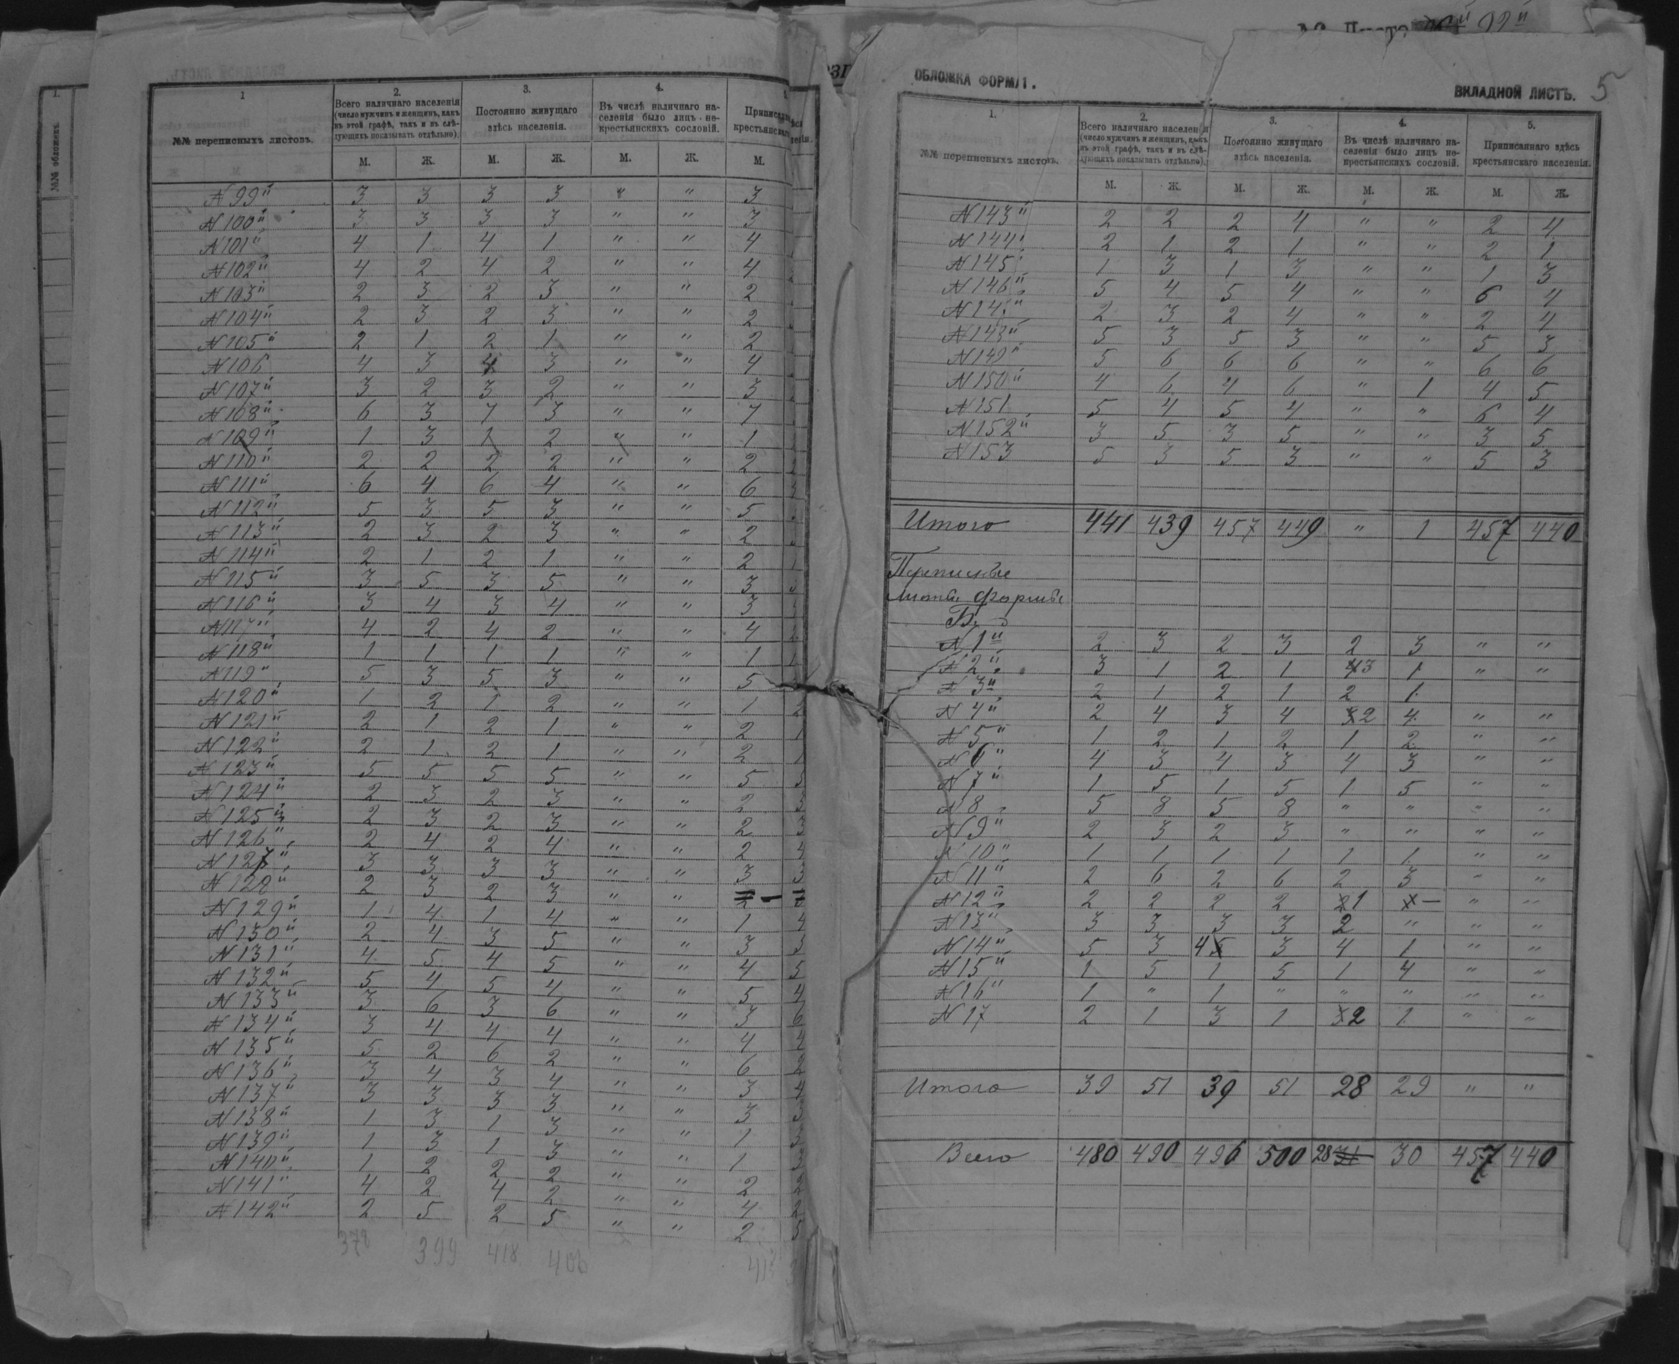 1
№№ переписныхъ листовъ.
2.
Всего наличнаго населенія
(число мужчинъ и женщинъ, какъ
въ этой графѣ, такъ и въ слѣ-
дующихъ показывать отдѣльно).
3.
Постоянно живущаго
здѣсь населенія.
4.
Въ числѣ наличнаго на-
селенія было лицъ не-
крестьянскихъ сословій.
М. Ж. М. Ж. М. Ж. М.
N 99й 3 3 3 3 " " 3
N 100й 3 3 3 3 " " 3
N 101й 4 1 4 1 " " 4
N 102й 4 2 4 2 " " 4
N 103й 2 3 2 3 " " 2
N 104й 2 3 2 3 " " 2
N 105й 2 1 2 1 " " 2
N 106 4 3 4 3 " " 4
N 107й 3 2 3 2 " " 3
N 108й 6 3 7 3 " " 7
N 109й 1 3 1 2 " " 1
N 110й 2 2 2 2 " " 2
N 111й 6 4 6 4 " " 6
N 112й 5 3 5 3 " " 5
N 113й 2 3 2 3 " " 2
N 114й 2 1 2 1 " " 2
N 115й 3 5 3 5 " " 3
N 116й 3 4 3 4 " " 3
N 117й 4 2 4 2 " " 4
N 118й 1 1 1 1 " " 1
N 119й 5 3 5 3 " " 5
N 120й 1 2 1 2 " " 1
N 121й 2 1 2 1 " " 2
N 122й 2 1 2 1 " " 2
N 123й 5 5 5 5 " " 5
N 124й 2 3 2 3 " " 2
N 125й 2 3 2 3 " " 2
N 126й 2 4 2 4 " " 2
N 127й 3 3 3 3 " " 3
N 128й 2 3 2 3 " " 2
N 129й 1 4 1 4 " " 1
N 130й 2 4 3 5 " " 3
N 131й 4 5 4 5 " " 4
N 132й 5 4 5 4 " " 5
N 133й 3 6 3 6 " " 3
N 134й 3 4 4 4 " " 4
N 135й 5 2 6 2 " " 6
N 136й 3 4 3 4 " " 3
N 137й 3 3 3 3 " " 3
N 138й 1 3 1 3 " " 1
N 139й 1 3 1 3 " " 1
N 140й 1 2 2 2 " " 2
N 141й 4 2 4 2 " " 4
N 142й 2 5 2 5 " " 2
399 418 406
ОБЛОЖКА ФОРМ 1.
ВКЛАДНОЙ ЛИСТЪ. 5
1.
№№ переписныхъ листовъ.
2.
Всего наличнаго населенія
(число мужчинъ и женщинъ, какъ
въ этой графѣ, такъ и въ слѣ-
дующихъ показывать отдѣльно).
3.
Постоянно живущаго
здѣсь населенія.
4.
Въ числѣ наличнаго на-
селенія было лицъ не-
крестьянскихъ сословій.
5.
Приписаннаго здѣсь
крестьянскаго населенія.
М. Ж. М. Ж. М. Ж. М. Ж.
N 143й 2 2 2 4 " " 2 4
N 144й 2 1 2 1 " " 2 1
N 145й 1 3 1 3 " " 1 3
N 146й 5 4 5 4 " " 6 4
N 14 2 3 2 4 " " 2 4
N 148й 5 3 5 3 " " 5 3
N 149й 5 6 6 6 " " 6 6
N 150й 4 6 4 6 " 1 4 5
N 151 5 4 5 4 " " 6 4
N 152й 3 5 3 5 " " 3 5
N 153 5 3 5 3 " " 5 3
Итого 441 439 457 449 " 1 457 440
Переписные
листы формы
Б.
N 1й 2 3 2 3 2 3 " "
N 2й 3 1 2 1 3 1 " "
N 3й 2 1 2 1 2 1
N 4й 2 4 3 4 2 4 " "
N 5й 1 2 1 2 1 2 " "
N 6й 4 3 4 3 4 3 " "
N 7й 1 5 1 5 1 5 " "
N 8 5 8 5 8 " " " "
N 9й 2 3 2 3 " " " "
N 10й 1 1 1 1 1 1 " "
N 11й 2 6 2 6 2 3 " "
N 12й 2 2 2 2 1 — " "
N 13й 3 3 3 3 2 " " "
N 14й 5 3 4 3 4 1 " "
N 15й 1 5 1 5 1 4 " "
N 16й 1 " 1 " " " " "
N 17 2 1 3 1 2 1 " "
Итого 39 51 39 51 28 29 " "
Всего 480 490 496 500 28 31 30 457 440